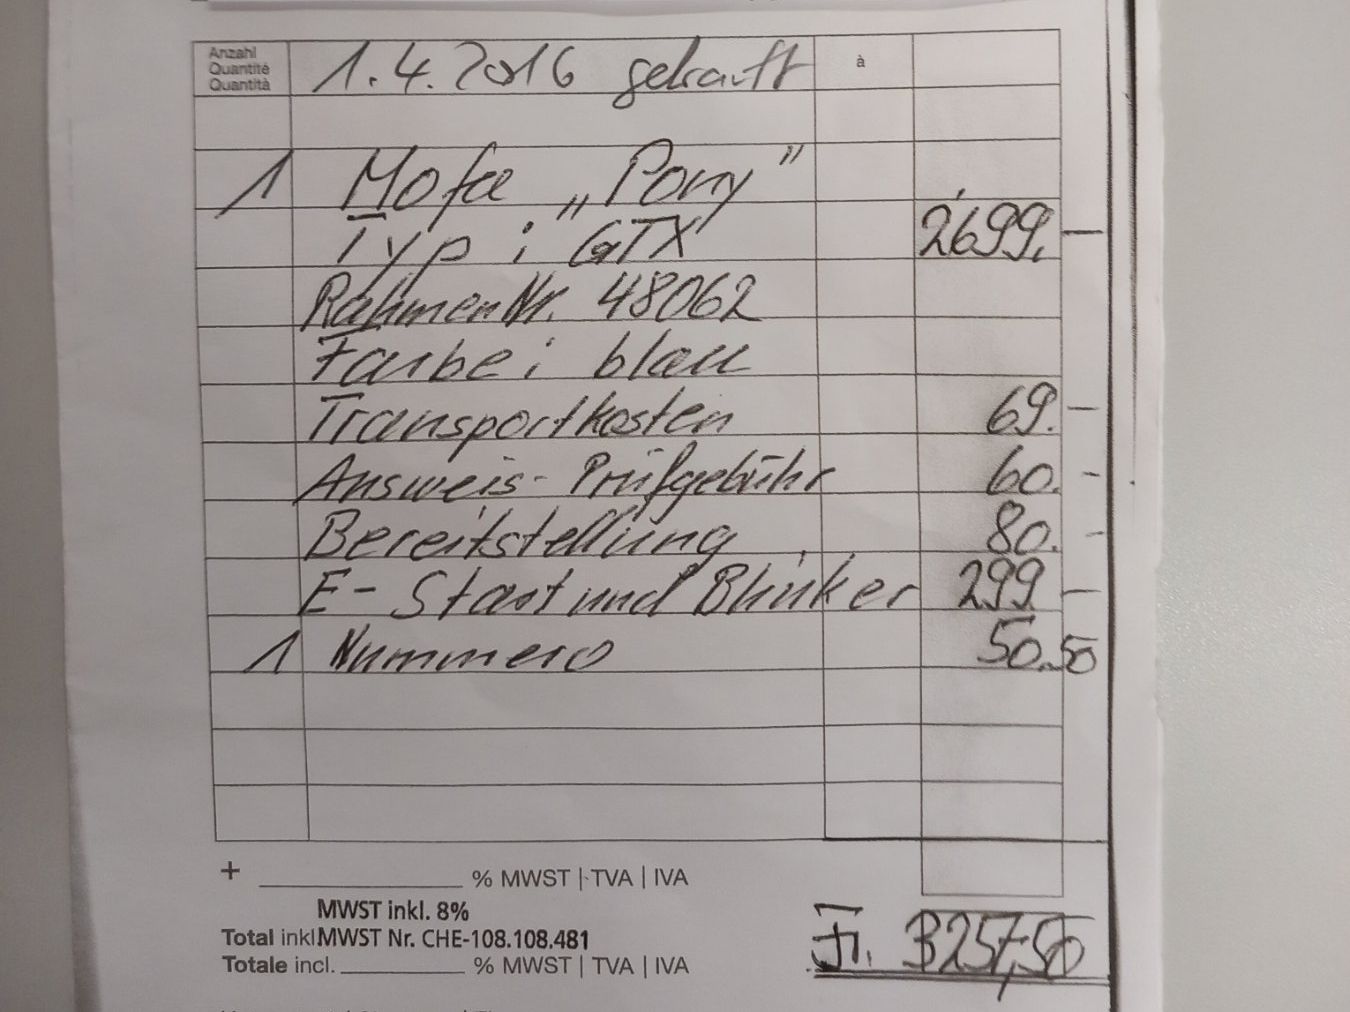 Anzahl
Quantité
Quantità
1.4.2016 gekauft à
1 Mofa „Pony”
Typ: GTX 2'699.—
Rahmen Nr. 48062
Farbe: blau
Transportkosten 69.—
Ausweis-Prüfgebühr 60.-
Bereitstellung 80.-
E-Start und Blinker 299 —
1 Nummero 50.50
+ % MWST | TVA | IVA
MWST inkl. 8%
Total inkl MWST Nr. CHE-108.108.481
Totale incl. % MWST | TVA | IVA
Fr. 3257,50